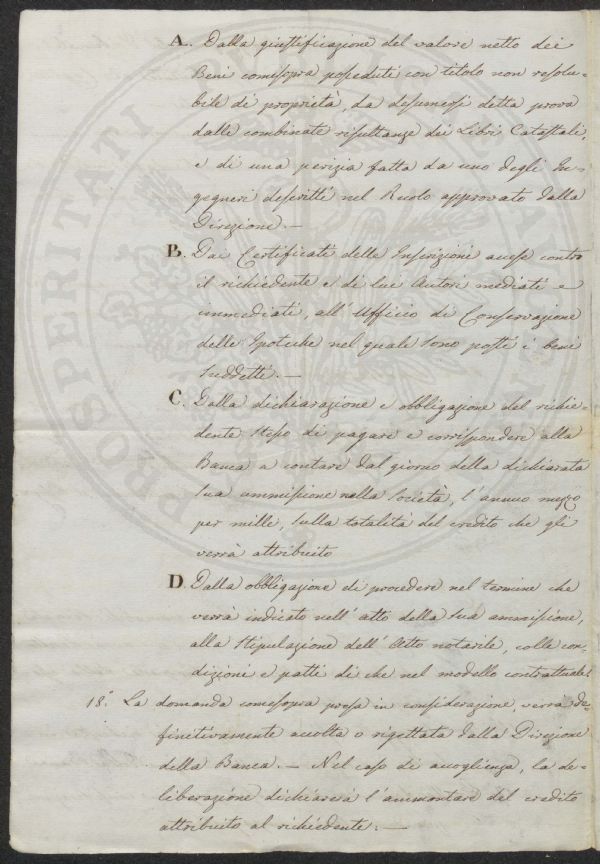 A. Dalla giustificazione del valore netto dei
Beni comesopra posseduti con titolo non resolu-
bile di proprietà, da desumersi detta prova
dalle combinate risultanze dei Libri Catastali,
e di una perizia fatta da uno degli In-
gegneri descritti nel Ruolo approvato dalla
Direzione.—
B. Dai Certificati delle Inscrizioni accese contro
il richiedente e di lui Autori mediati e
immediati, all'Ufficio di Conservazione
delle Ipoteche nel quale sono posti i beni
suddetti.—
C. Dalla dichiarazione e obbligazione del richie-
dente stesso di pagare e corrispondere alla
Banca a contare dal giorno della dichiarata
sua ammissione nella Società, l'annuo mezzo
per mille, sulla totalità del credito che gli
verrà attribuito
D. Dalla obbligazione di procedere nel termine che
verrà indicato nell'atto della sua ammissione,
alla stipulazione dell'Atto notarile, colle con-
dizioni e patti di che nel modello contrattuale.
18.° La domanda comesopra presa in considerazione, verrà de-
finitivamente accolta o rigettata dalla Direzione
della Banca.— Nel caso di accoglienza, la de-
liberazione dichiarerà l'ammontare del credito
attribuito al richiedente.—
PROSPERITATI PUBLICAE